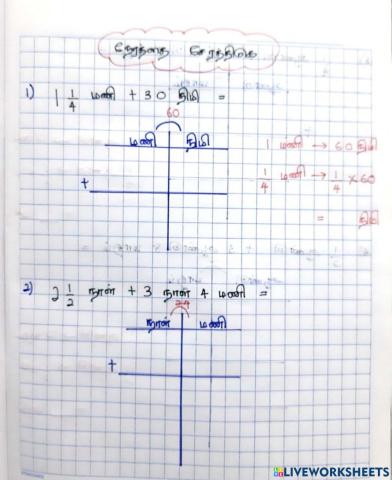 நேரத்தை சேர்த்திடுக
1) 1 1/4 மணி + 30 நிமி =
60
மணி நிமி
+
1 மணி → 60 நிமி
1/4 மணி → 1/4 × 60
= நிமி
2) 2 1/2 நாள் + 3 நாள் 4 மணி =
24
நாள் மணி
+
LIVEWORKSHEETS